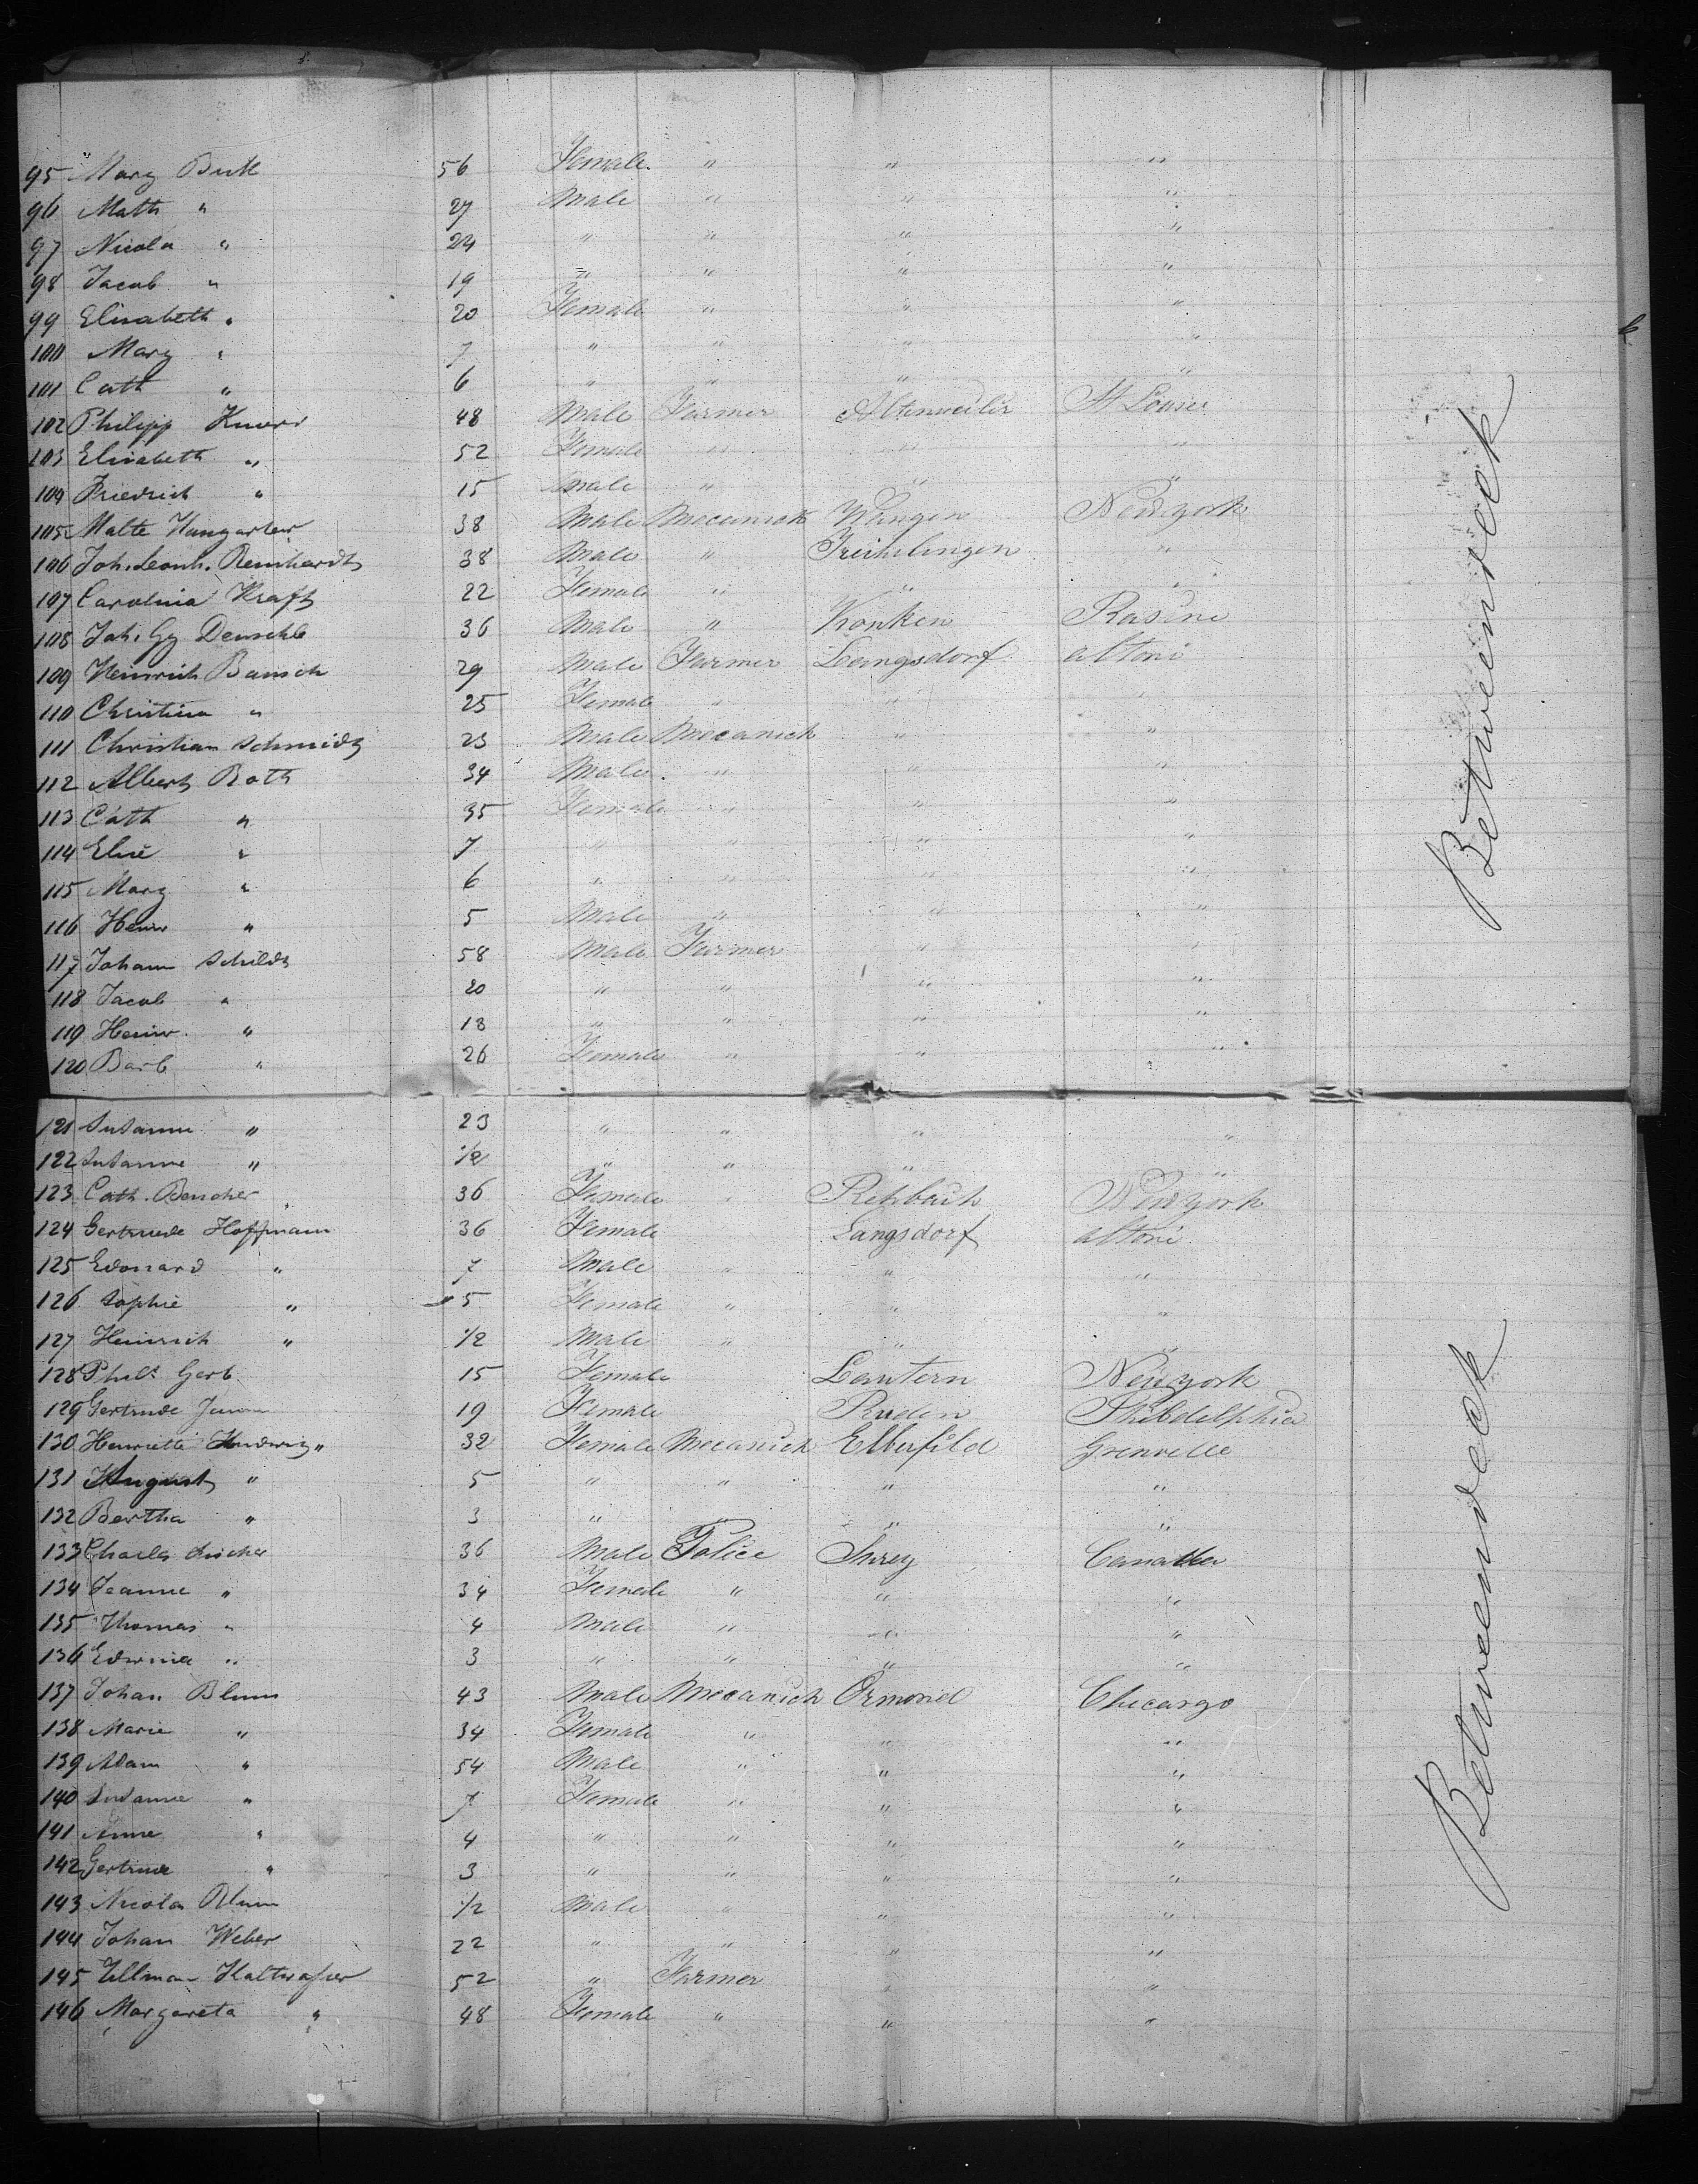 95 Marg Buk 56 Female " " "
96 Math " 27 Male " " "
97 Nicola " 24 " " " "
98 Jacob " 19 " " " "
99 Elisabeth " 20 Female " " "
100 Marg " 7 " " " "
101 Cath " 6 " " " "
102 Philipp 48 Male Farmer Altenweiler St Louis
103 Elisabeth " 52 Female " " "
104 Friedrich " 15 Male " " "
105 Malte Hungarter 38 Male Mecanick Wangen Newyork
106 Joh. Leonh. Reinhardt 38 Male " "
107 Carolina Kraft 22 Female " " "
108 Joh. Gg Deuschle 36 Male " Konken Rasine
109 Heinrich Bansch 29 Male Farmer Langsdorf altoni
110 Christina " 25 Female " " "
111 Christian Schmidt 23 Male Mecanick " "
112 Albert Roth 34 Male " " "
113 Cath " 35 Female " " "
114 Elise " 7 " " " "
115 Marg " 6 " " " "
116 Heinr " 5 Male " " "
117 Johann Schildt 58 Male Farmer " "
118 Jacob " 20 " " " "
119 Heinr. " 13 " " " "
120 Barb " 26 Female " " "
121 Susanne " 23 " " " "
122 Susanne " 1/2 " " " "
123 Cath. Bencher 36 Female " Rehbach Newyork
124 Gertrude Hoffmann 36 Female Langsdorf altoni
125 Edouard " 7 Male " " "
126 Sophie " 5 Female " " "
127 Heinrich " 1/2 Male " " "
128 Gerb 15 Female Lautern Newyork
129 Gertrude 19 Female Ruden Philadelphia
130 Henriette Hudwig " 32 Female Mecanick Elberfild Grenvelle
131 August " 5 " " " "
132 Bertha " 3 " " " "
133 Charles 36 Male Police Surey Canada
134 Jeanne " 34 Female " " "
135 Thomas " 4 Male " " "
136 Edwina " 3 " " " "
137 Johan Blum 43 Male Mecanick Ormond Chicargo
138 Marie " 34 Female " " "
139 Adam " 54 Male " " "
140 Susanne " 7 Female " " "
141 Anne " 4 " " " "
142 Gertrude " 3 " " " "
143 Nicolas Blum 1/2 Male " " "
144 Johan Weber 22 " " " "
145 Ullman Kaltwasser 52 " Farmer " "
146 Margareta " 48 Female " " "
Betweendeck
Betweendeck